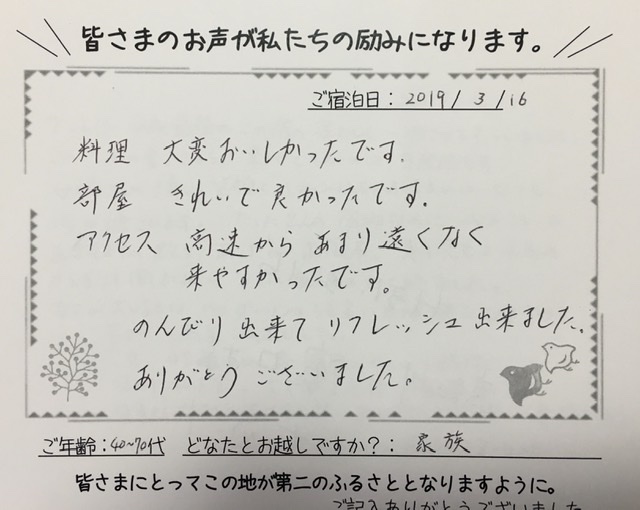 皆さまのお声が私たちの励みになります。
ご宿泊日: 2019/3/16
料理 大変おいしかったです.
部屋 きれいで良かったです.
アクセス 高速からあまり遠くなく
来やすかったです。
のんびり出来てリフレッシュ出来ました.
ありがとうございました。
ご年齢:40~70代 どなたとお越しですか?: 家族
皆さまにとってこの地が第二のふるさととなりますように。
ご記入ありがとうございました